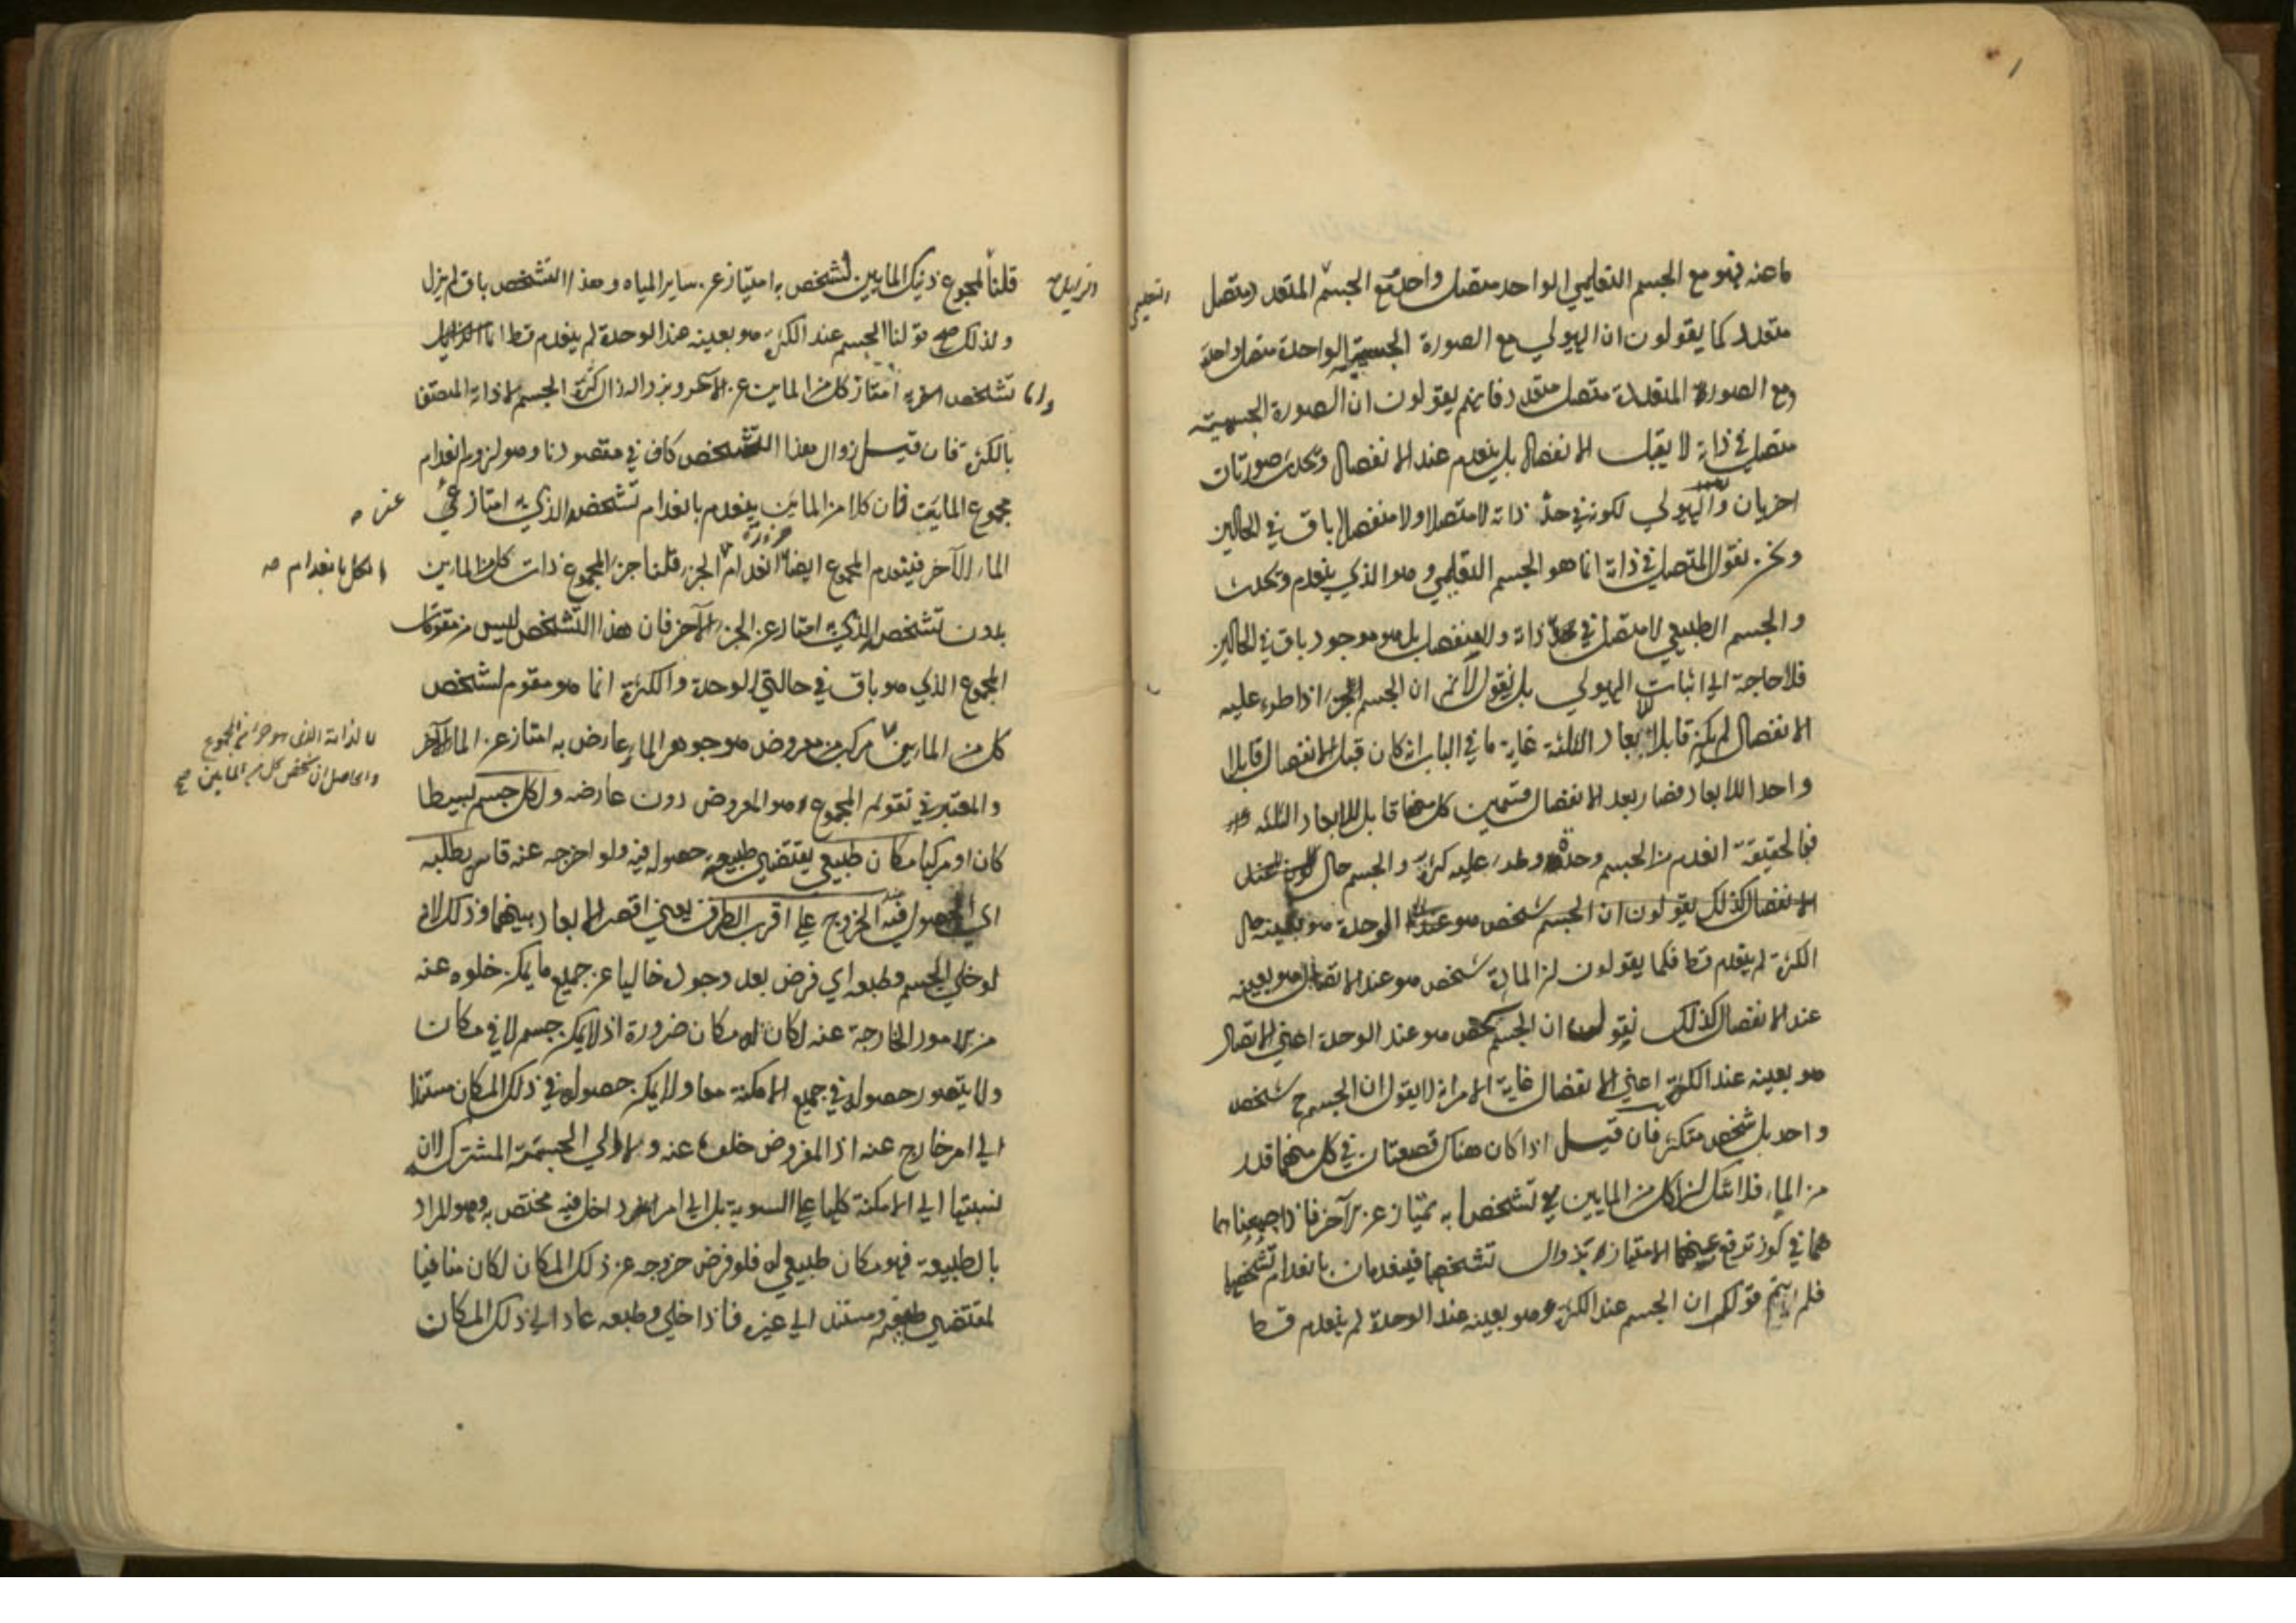 ما عنه فهو مع الجسم التعليمي الواحد متصل واحد ومع الجسم المتعدد متصل
التعليمي
متعدد كما يقولون ان الهيولي مع الصورة الجسمية الواحدة متصل واحد
ومع الصورة المتعددة متصل متعدد فانهم يقولون ان الصورة الجسمية
متصل في ذاته لا يقبل الانفصال بل ينعدم عند الانفصال وتحدث صورتان
اخريان والهيولي لكونه في حد ذاته لا متصلا ولا منفصلا باق في الحالين
ونحن نقول المتصل في ذاته انما هو الجسم التعليمي وهو الذي ينعدم ويحدث
والجسم الطبيعي لا متصل في حد ذاته ولا منفصل بل هو موجود باق في الحالين
فلا حاجة الي اثبات الهيولي بل نقول لا نم ان الجسم اذا طرء عليه
الانفصال لم يكن قابلا للابعاد الثلثة غاية ما في الباب انه كان قبل الانفصال قابلا
واحدا للابعاد فصار بعد الانفصال قسمين كل منهما قابل للابعاد الثلثة
ففي الحقيقة انعدم من الجسم وحدة وطرء عليه كثرة والجسم حال
الانفصال كذلك يقولون ان الجسم شخص هو عند الوحدة هو بعينه حال
الكثرة لم ينعدم قط فكما يقولون ان المادة شخص هو عند الاتصال هو بعينه
عند الانفصال كذلك نقول ان الجسم شخص هو عند الوحدة اعني الاتصال
هو بعينه عند الكثرة اعني الانفصال غاية الامر انه لا يقول ان الجسم ح شخص
واحد بل شخص متكثر فان قيل اذا كان هناك قصعتان في كل منهما قدر
من الماء فلا شك ان لكل من المايين تشخصا به يمتاز عن الآخر فاذا جمعنا
هما في كوز ترفع عنهما الامتياز بزوال تشخصهما فينعدمان بانعدام تشخصهما
فلم يتم قولكم ان الجسم عند الكثرة هو بعينه عند الوحدة لم ينعدم قط
قلنا لمجموع ذينك المايين تشخص به امتياز عن ساير المياه وهذا التشخص باق لم يزل
ولذلك صح قولنا الجسم عند الكثرة هو بعينه عند الوحدة لم ينعدم قط انما الزايل
وانما تشخص به امتاز كل من المايين عن الآخر وبزواله زال كثرة الجسم لا ذاته المتصف
بالكثرة فان قيل زوال هذا التشخص كاف في مقصودنا وهو لزوم انعدام
مجموع المايين فان كلا من المايين ينعدم بانعدام تشخصه الذي به امتاز عن
الماء الآخر فينعدم المجموع ايضا ضرورة انعدام الجزء قلنا جزء المجموع ذات كل من المايين
الكل بانعدام صح
بدون تشخصه الذي به امتاز عن الجزء الآخر فان هذا التشخص ليس من مقومات
المجموع الذي هو باق في حالتي الوحدة والكثرة انما هو مقوم لشخص
كل من المايين مركب من معروض هو جوهر الماء وعارض به امتاز عن الماء الآخر
لا لذاته الذي هو جزء من المجموع
والحاصل ان شخص كل من المايين صح
والمعتبر في تقوم المجموع هو المعروض دون عارضه ولكل جسم بسيطا
كان او مركبا مكان طبيعي يقتضي طبيعته حصوله فيه ولو اخرجه عنه قاسر يطلبه
اي الحصول فيه الخروج علي اقرب الطرق يعني اقصر الابعاد بينهما وذلك لانه
لو خلي الجسم وطبعه اي فرض بعد وجوده خاليا عن جميع ما يمكن خلوه عنه
من الامور الخارجة عنه لكان له مكان ضرورة اذ لا يمكن جسم لا في مكان
ولا يتصور حصوله في جميع الامكنة معا ولا يمكن حصوله في ذلك المكان مستندا
الي امر خارج عنه اذ المفروض خلوه عنه ولا الي الجسمية المشترك لان
نسبتها الي الامكنة كلها علي السوية بل الي امر داخل فيه مختص به وهو المراد
بالطبيعة فهو مكان طبيعي له فلو فرض خروجه عن ذلك المكان لكان منافيا
لمقتضي طبيعته ومستند الي غيره فاذا خلي وطبعه عاد الي ذلك المكان